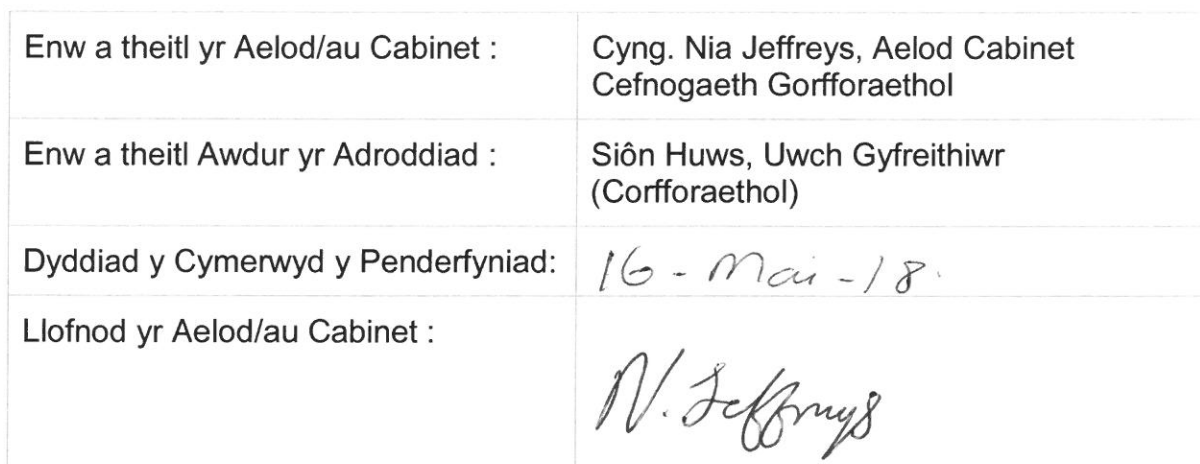 Enw a theitl yr Aelod/au Cabinet :
Cyng. Nia Jeffreys, Aelod Cabinet
Cefnogaeth Gorfforaethol
Enw a theitl Awdur yr Adroddiad :
Siôn Huws, Uwch Gyfreithiwr
(Corfforaethol)
Dyddiad y Cymerwyd y Penderfyniad:
16 - Mai - 18.
Llofnod yr Aelod/au Cabinet :
N. Jeffreys